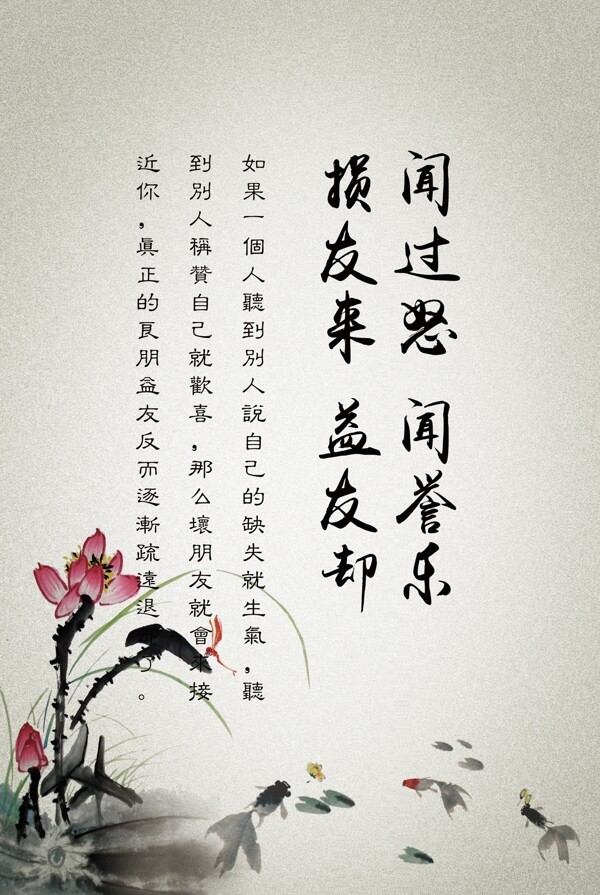 闻过怒 闻誉乐
损友来 益友却
如果一個人聽到別人說自己的缺失就生氣，聽
到別人稱贊自己就歡喜，那么壞朋友就會來接
近你，真正的良朋益友反而逐漸疏遠退却了。